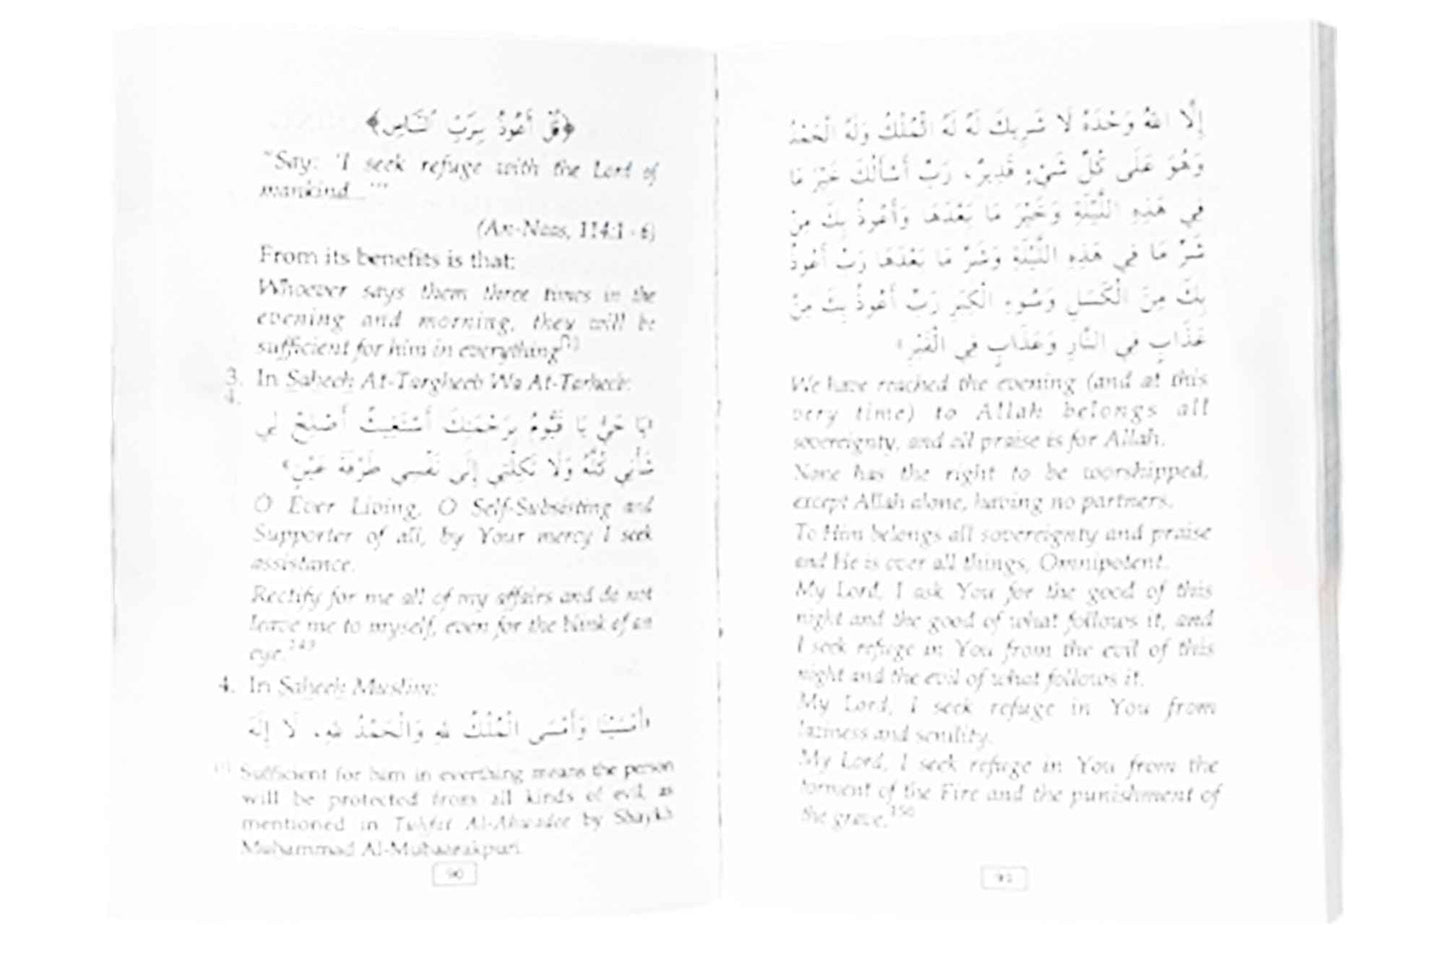 ﴿قُلْ أَعُوذُ بِرَبِّ النَّاسِ﴾
"Say: 'I seek refuge with the Lord of
mankind...'"
(An-Naas, 114:1 - 6)
From its benefits is that:
Whoever says them three times in the
evening and morning, they will be
sufficient for him in everything[1]
3. In Saheeh At-Targheeb Wa At-Tarheeb:
4.
«يَا حَيُّ يَا قَيُّومُ بِرَحْمَتِكَ أَسْتَغِيثُ أَصْلِحْ لِي
شَأْنِي كُلَّهُ وَلَا تَكِلْنِي إِلَى نَفْسِي طَرْفَةَ عَيْنٍ»
O Ever Living, O Self-Subsisting and
Supporter of all, by Your mercy I seek
assistance.
Rectify for me all of my affairs and do not
leave me to myself, even for the blink of an
eye.149
4. In Saheeh Muslim:
«أَمْسَيْنَا وَأَمْسَى الْمُلْكُ لِلَّهِ وَالْحَمْدُ لِلَّهِ، لَا إِلَهَ
[1] Sufficient for him in everthing means the person
will be protected from all kinds of evil, as
mentioned in Tuhfat Al-Ahwadee by Shaykh
Muhammad Al-Mubaarakpuri.
90
إِلَّا اللهُ وَحْدَهُ لَا شَرِيكَ لَهُ لَهُ الْمُلْكُ وَلَهُ الْحَمْدُ
وَهُوَ عَلَى كُلِّ شَيْءٍ قَدِيرٌ، رَبِّ أَسْأَلُكَ خَيْرَ مَا
فِي هَذِهِ اللَّيْلَةِ وَخَيْرَ مَا بَعْدَهَا وَأَعُوذُ بِكَ مِنْ
شَرِّ مَا فِي هَذِهِ اللَّيْلَةِ وَشَرِّ مَا بَعْدَهَا رَبِّ أَعُوذُ
بِكَ مِنَ الْكَسَلِ وَسُوءِ الْكِبَرِ رَبِّ أَعُوذُ بِكَ مِنْ
عَذَابٍ فِي النَّارِ وَعَذَابٍ فِي الْقَبْرِ»
We have reached the evening (and at this
very time) to Allah belongs all
sovereignty, and all praise is for Allah.
None has the right to be worshipped,
except Allah alone, having no partners.
To Him belongs all sovereignty and praise
and He is over all things, Omnipotent.
My Lord, I ask You for the good of this
night and the good of what follows it, and
I seek refuge in You from the evil of this
night and the evil of what follows it.
My Lord, I seek refuge in You from
laziness and senility.
My Lord, I seek refuge in You from the
torment of the Fire and the punishment of
the grave.150
91